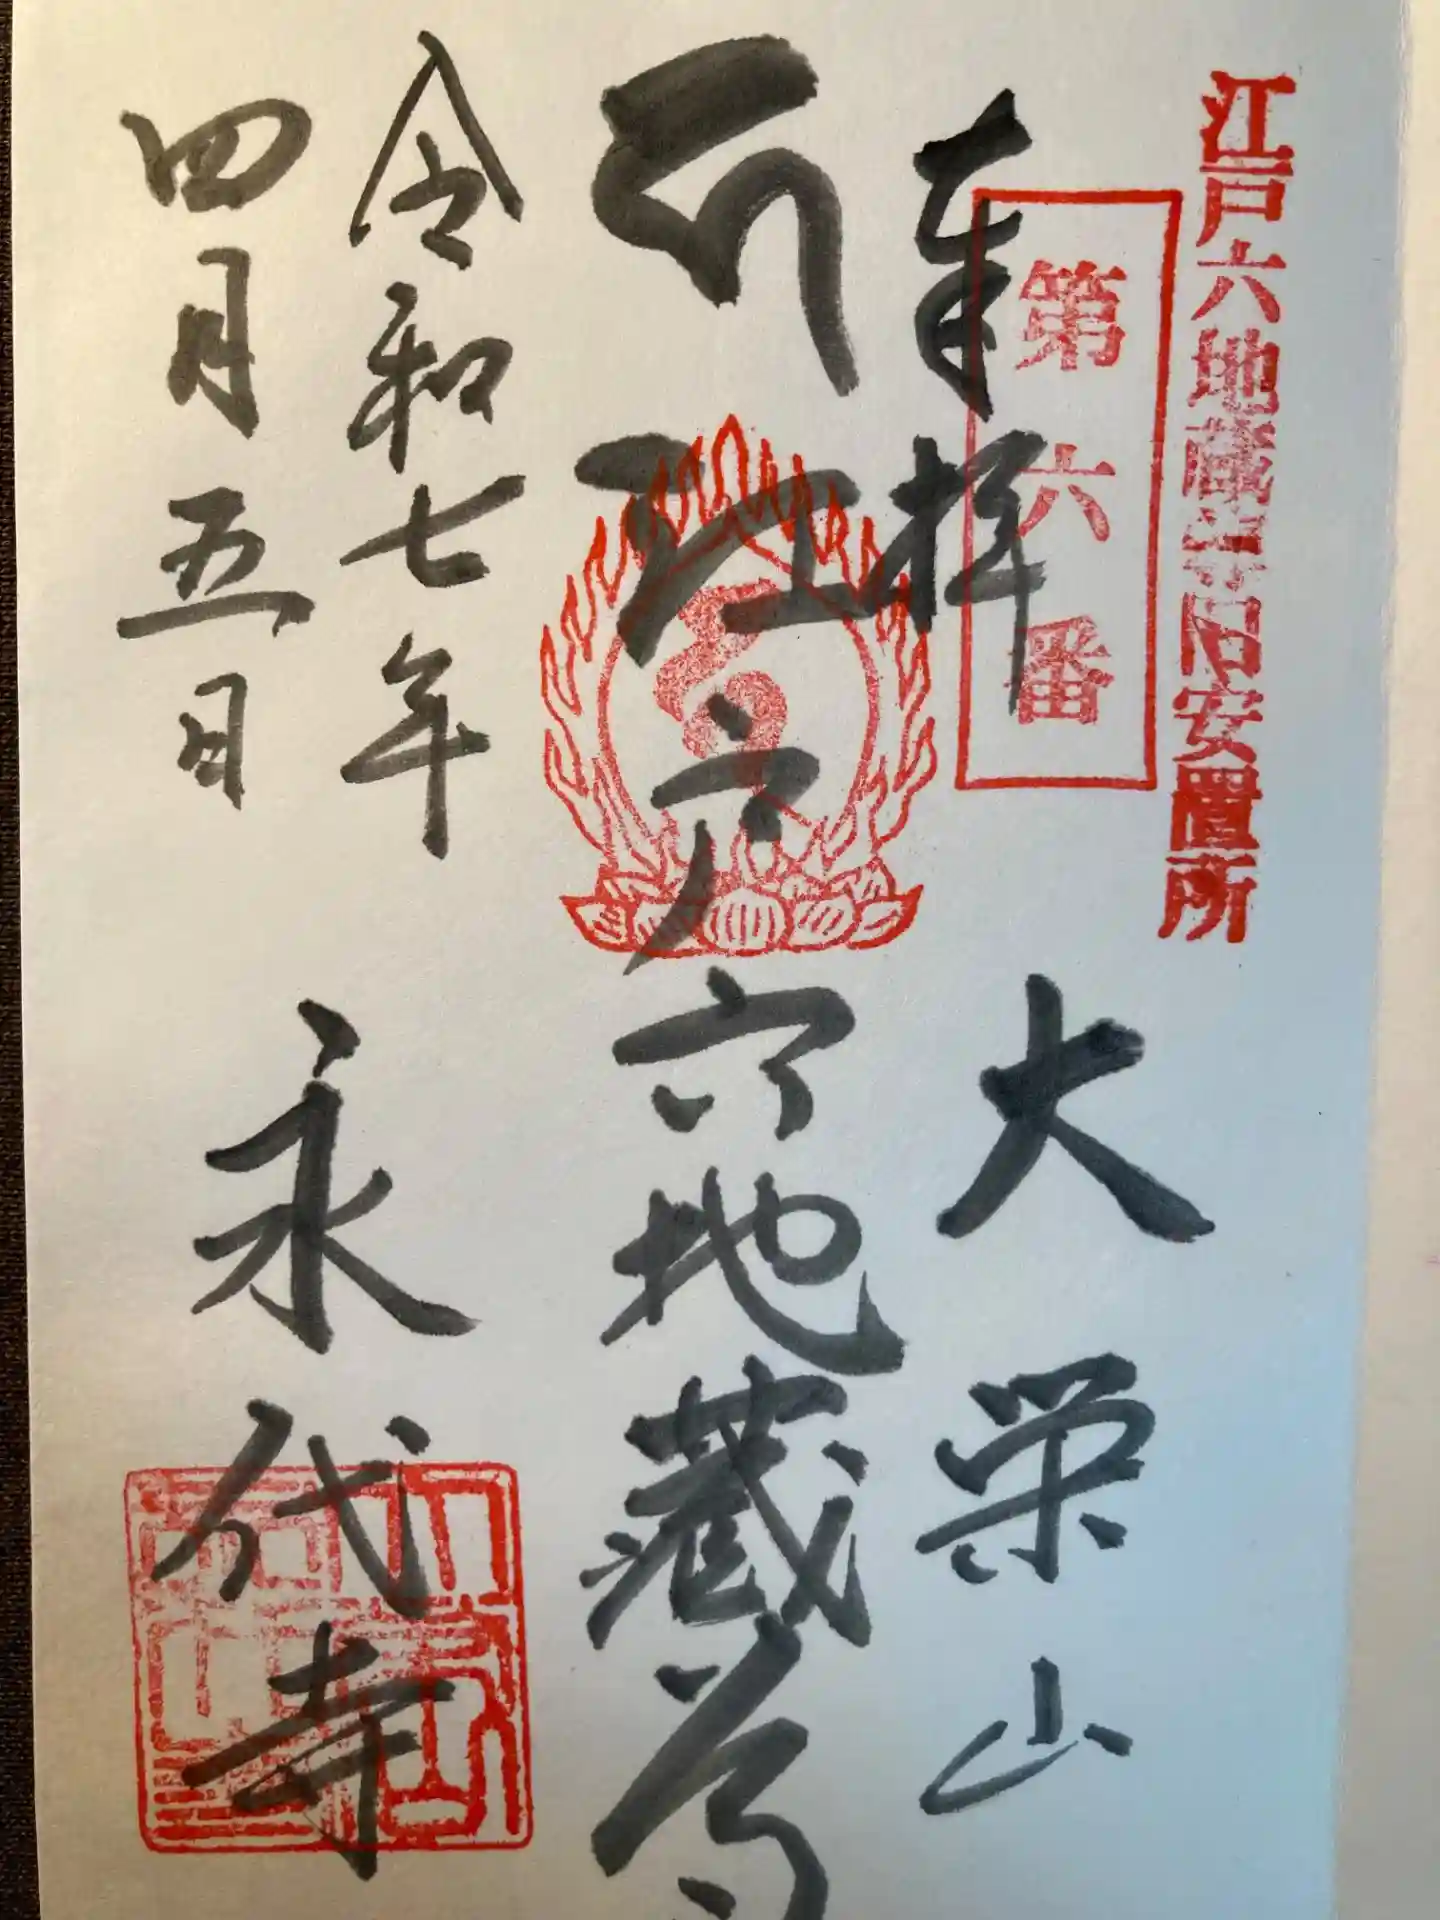 江戸六地蔵尊石安置所
第六番
奉拝
大栄山
江戸六地蔵尊
令和七年
四月五日
永代寺